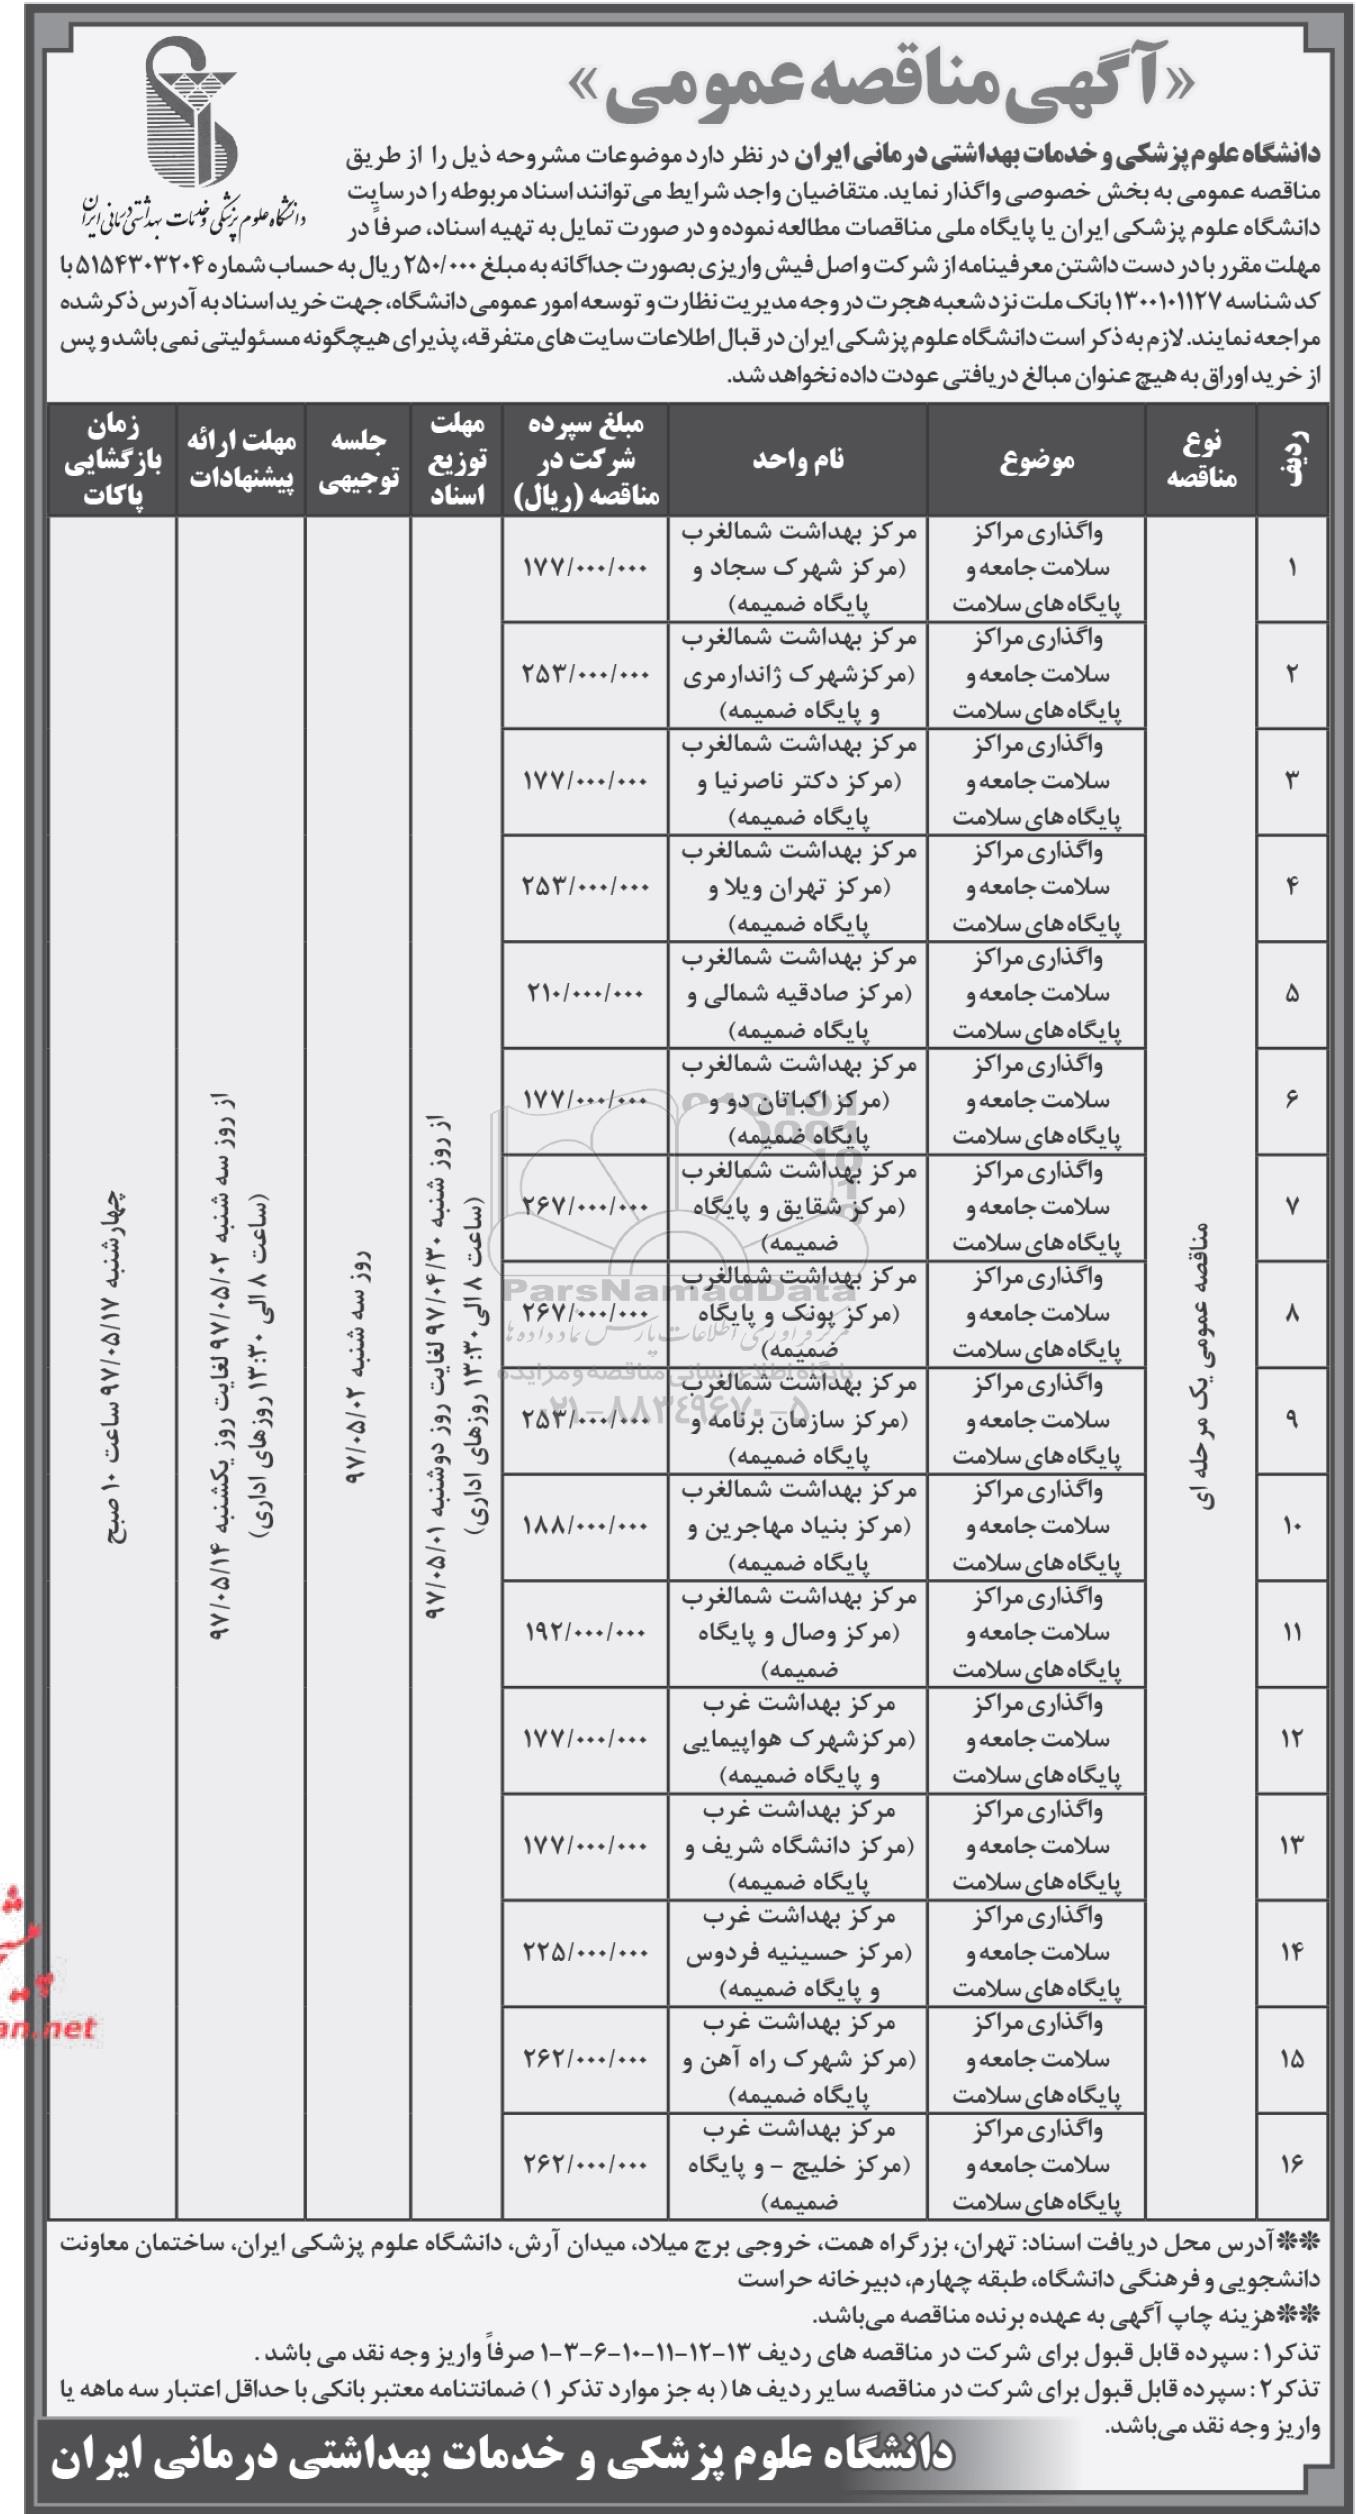 «آگهی مناقصه عمومی»
دانشگاه علوم پزشکی و خدمات بهداشتی درمانی ایران
دانشگاه علوم پزشکی و خدمات بهداشتی درمانی ایران در نظر دارد موضوعات مشروحه ذیل را از طریق
مناقصه عمومی به بخش خصوصی واگذار نماید. متقاضیان واجد شرایط می‌توانند اسناد مربوطه را درسایت
دانشگاه علوم پزشکی ایران یا پایگاه ملی مناقصات مطالعه نموده و در صورت تمایل به تهیه اسناد، صرفاً در
مهلت مقرر با در دست داشتن معرفینامه از شرکت و اصل فیش واریزی بصورت جداگانه به مبلغ ۲۵۰/۰۰۰ ریال به حساب شماره ۵۱۵۴۳۰۳۲۰۴ با
کد شناسه ۱۳۰۰۱۰۱۱۲۷ بانک ملت نزد شعبه هجرت در وجه مدیریت نظارت و توسعه امور عمومی دانشگاه، جهت خرید اسناد به آدرس ذکر شده
مراجعه نمایند. لازم به ذکر است دانشگاه علوم پزشکی ایران در قبال اطلاعات سایت های متفرقه، پذیرای هیچگونه مسئولیتی نمی باشد و پس
از خرید اوراق به هیچ عنوان مبالغ دریافتی عودت داده نخواهد شد.
ردیف
نوع
مناقصه
موضوع
نام واحد
مبلغ سپرده
شرکت در
مناقصه (ریال)
مهلت
توزیع
اسناد
جلسه
توجیهی
مهلت ارائه
پیشنهادات
زمان
بازگشایی
پاکات
۱
واگذاری مراکز
سلامت جامعه و
پایگاه های سلامت
مرکز بهداشت شمالغرب
(مرکز شهرک سجاد و
پایگاه ضمیمه)
۱۷۷/۰۰۰/۰۰۰
۲
واگذاری مراکز
سلامت جامعه و
پایگاه های سلامت
مرکز بهداشت شمالغرب
(مرکزشهرک ژاندارمری
و پایگاه ضمیمه)
۲۵۳/۰۰۰/۰۰۰
۳
واگذاری مراکز
سلامت جامعه و
پایگاه های سلامت
مرکز بهداشت شمالغرب
(مرکز دکتر ناصرنیا و
پایگاه ضمیمه)
۱۷۷/۰۰۰/۰۰۰
۴
واگذاری مراکز
سلامت جامعه و
پایگاه های سلامت
مرکز بهداشت شمالغرب
(مرکز تهران ویلا و
پایگاه ضمیمه)
۲۵۳/۰۰۰/۰۰۰
۵
واگذاری مراکز
سلامت جامعه و
پایگاه های سلامت
مرکز بهداشت شمالغرب
(مرکز صادقیه شمالی و
پایگاه ضمیمه)
۲۱۰/۰۰۰/۰۰۰
۶
واگذاری مراکز
سلامت جامعه و
پایگاه های سلامت
مرکز بهداشت شمالغرب
(مرکز اکباتان دو و
پایگاه ضمیمه)
۱۷۷/۰۰۰/۰۰۰
۷
واگذاری مراکز
سلامت جامعه و
پایگاه های سلامت
مرکز بهداشت شمالغرب
(مرکز شقایق و پایگاه
ضمیمه)
۲۶۷/۰۰۰/۰۰۰
۸
واگذاری مراکز
سلامت جامعه و
پایگاه های سلامت
مرکز بهداشت شمالغرب
(مرکز پونک و پایگاه
ضمیمه)
۲۶۷/۰۰۰/۰۰۰
۹
واگذاری مراکز
سلامت جامعه و
پایگاه های سلامت
مرکز بهداشت شمالغرب
(مرکز سازمان برنامه و
پایگاه ضمیمه)
۲۵۳/۰۰۰/۰۰۰
۱۰
واگذاری مراکز
سلامت جامعه و
پایگاه های سلامت
مرکز بهداشت شمالغرب
(مرکز بنیاد مهاجرین و
پایگاه ضمیمه)
۱۸۸/۰۰۰/۰۰۰
۱۱
واگذاری مراکز
سلامت جامعه و
پایگاه های سلامت
مرکز بهداشت شمالغرب
(مرکز وصال و پایگاه
ضمیمه)
۱۹۲/۰۰۰/۰۰۰
۱۲
واگذاری مراکز
سلامت جامعه و
پایگاه های سلامت
مرکز بهداشت غرب
(مرکزشهرک هواپیمایی
و پایگاه ضمیمه)
۱۷۷/۰۰۰/۰۰۰
۱۳
واگذاری مراکز
سلامت جامعه و
پایگاه های سلامت
مرکز بهداشت غرب
(مرکز دانشگاه شریف و
پایگاه ضمیمه)
۱۷۷/۰۰۰/۰۰۰
۱۴
واگذاری مراکز
سلامت جامعه و
پایگاه های سلامت
مرکز بهداشت غرب
(مرکز حسینیه فردوس
و پایگاه ضمیمه)
۲۲۵/۰۰۰/۰۰۰
۱۵
واگذاری مراکز
سلامت جامعه و
پایگاه های سلامت
مرکز بهداشت غرب
(مرکز شهرک راه آهن و
پایگاه ضمیمه)
۲۶۲/۰۰۰/۰۰۰
۱۶
واگذاری مراکز
سلامت جامعه و
پایگاه های سلامت
مرکز بهداشت غرب
(مرکز خلیج - و پایگاه
ضمیمه)
۲۶۲/۰۰۰/۰۰۰
مناقصه عمومی یک مرحله ای
از روز شنبه ۹۷/۰۴/۳۰ لغایت روز دوشنبه ۹۷/۰۵/۰۱
(ساعت ۸ الی ۱۳:۳۰ روزهای اداری)
روز سه شنبه ۹۷/۰۵/۰۲
از روز سه شنبه ۹۷/۰۵/۰۲ لغایت روز یکشنبه ۹۷/۰۵/۱۴
(ساعت ۸ الی ۱۳:۳۰ روزهای اداری)
چهارشنبه ۹۷/۰۵/۱۷ ساعت ۱۰ صبح
ParsNamadData
مرکز فرآوری اطلاعات پارس نماد داده ها
پایگاه اطلاع رسانی مناقصه و مزایده
۰۲۱-۸۸۳۴۹۶۷۰-۵
an.net
**آدرس محل دریافت اسناد: تهران، بزرگراه همت، خروجی برج میلاد، میدان آرش، دانشگاه علوم پزشکی ایران، ساختمان معاونت
دانشجویی و فرهنگی دانشگاه، طبقه چهارم، دبیرخانه حراست
**هزینه چاپ آگهی به عهده برنده مناقصه می‌باشد.
تذکر۱: سپرده قابل قبول برای شرکت در مناقصه های ردیف ۱۳-۱۲-۱۱-۱۰-۶-۳-۱ صرفاً واریز وجه نقد می باشد .
تذکر۲: سپرده قابل قبول برای شرکت در مناقصه سایر ردیف ها ( به جز موارد تذکر ۱ ) ضمانتنامه معتبر بانکی با حداقل اعتبار سه ماهه یا
واریز وجه نقد می‌باشد.
دانشگاه علوم پزشکی و خدمات بهداشتی درمانی ایران